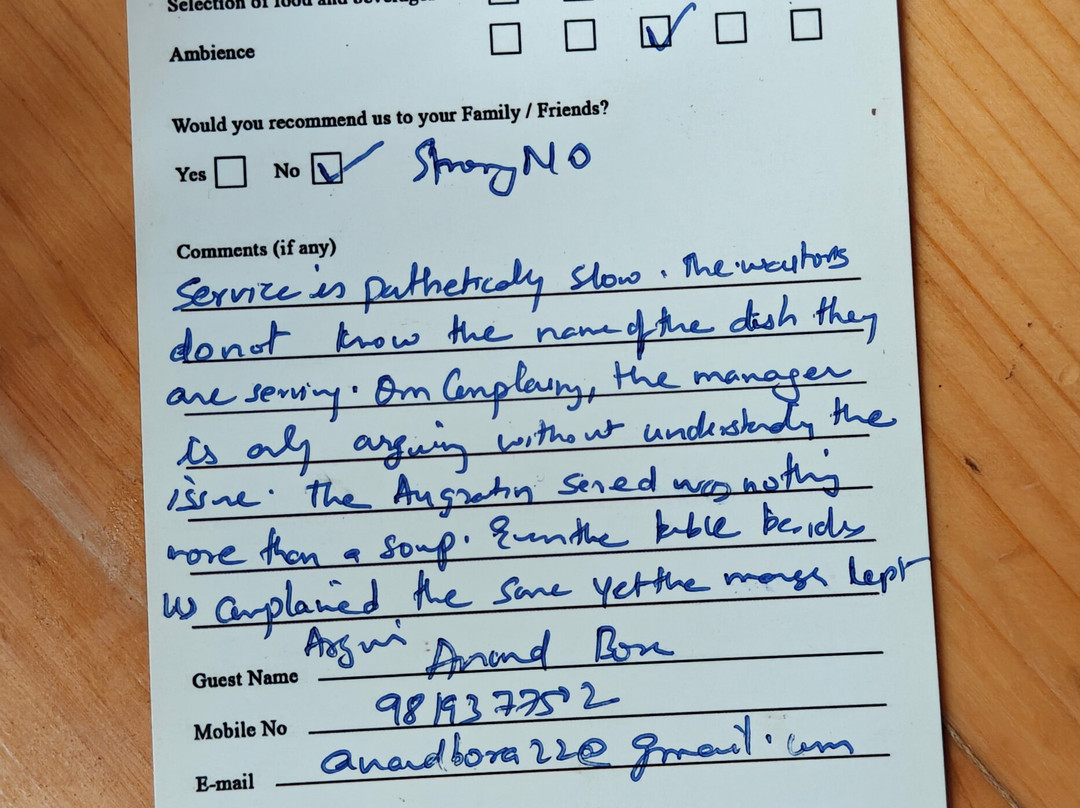 Selection of food and beverages
Ambience
Would you recommend us to your Family / Friends?
Yes No Strong NO
Comments (if any)
Service is pathetically slow. The waitors
do not know the name of the dish they
are serving. On Complaing, the manager
is only arguing without understandg the
issue. The Augratin served was nothing
more than a soup. Even the table besides
us complained the same yet the manger kept
Argui
Guest Name Anand Bora
Mobile No 9819377502
E-mail anandbora22@gmail.com